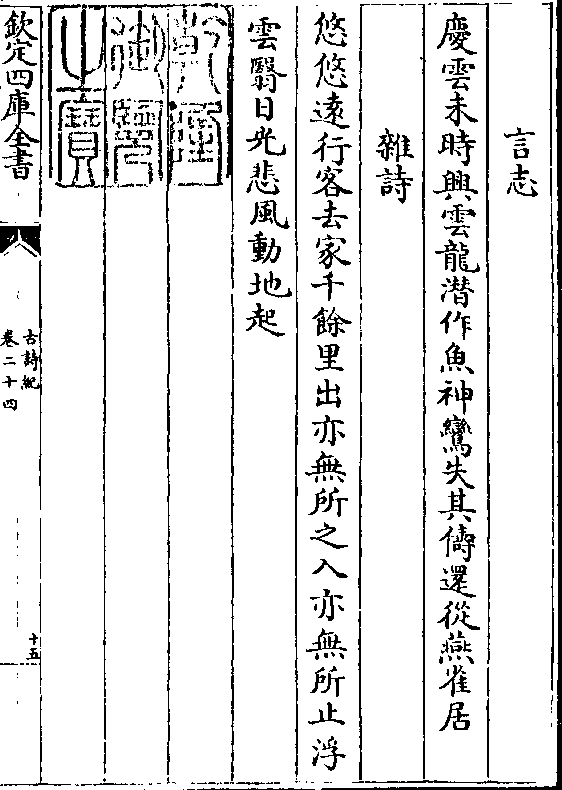 言志
慶雲未時興雲龍潛作魚神鸞失其儔還從燕雀居
雜詩
悠悠遠行客去家千餘里出亦無所之入亦無所止浮
雲翳日光悲風動地起
乾隆御覽之寶
欽定四庫全書
古詩紀
卷二十四
十五